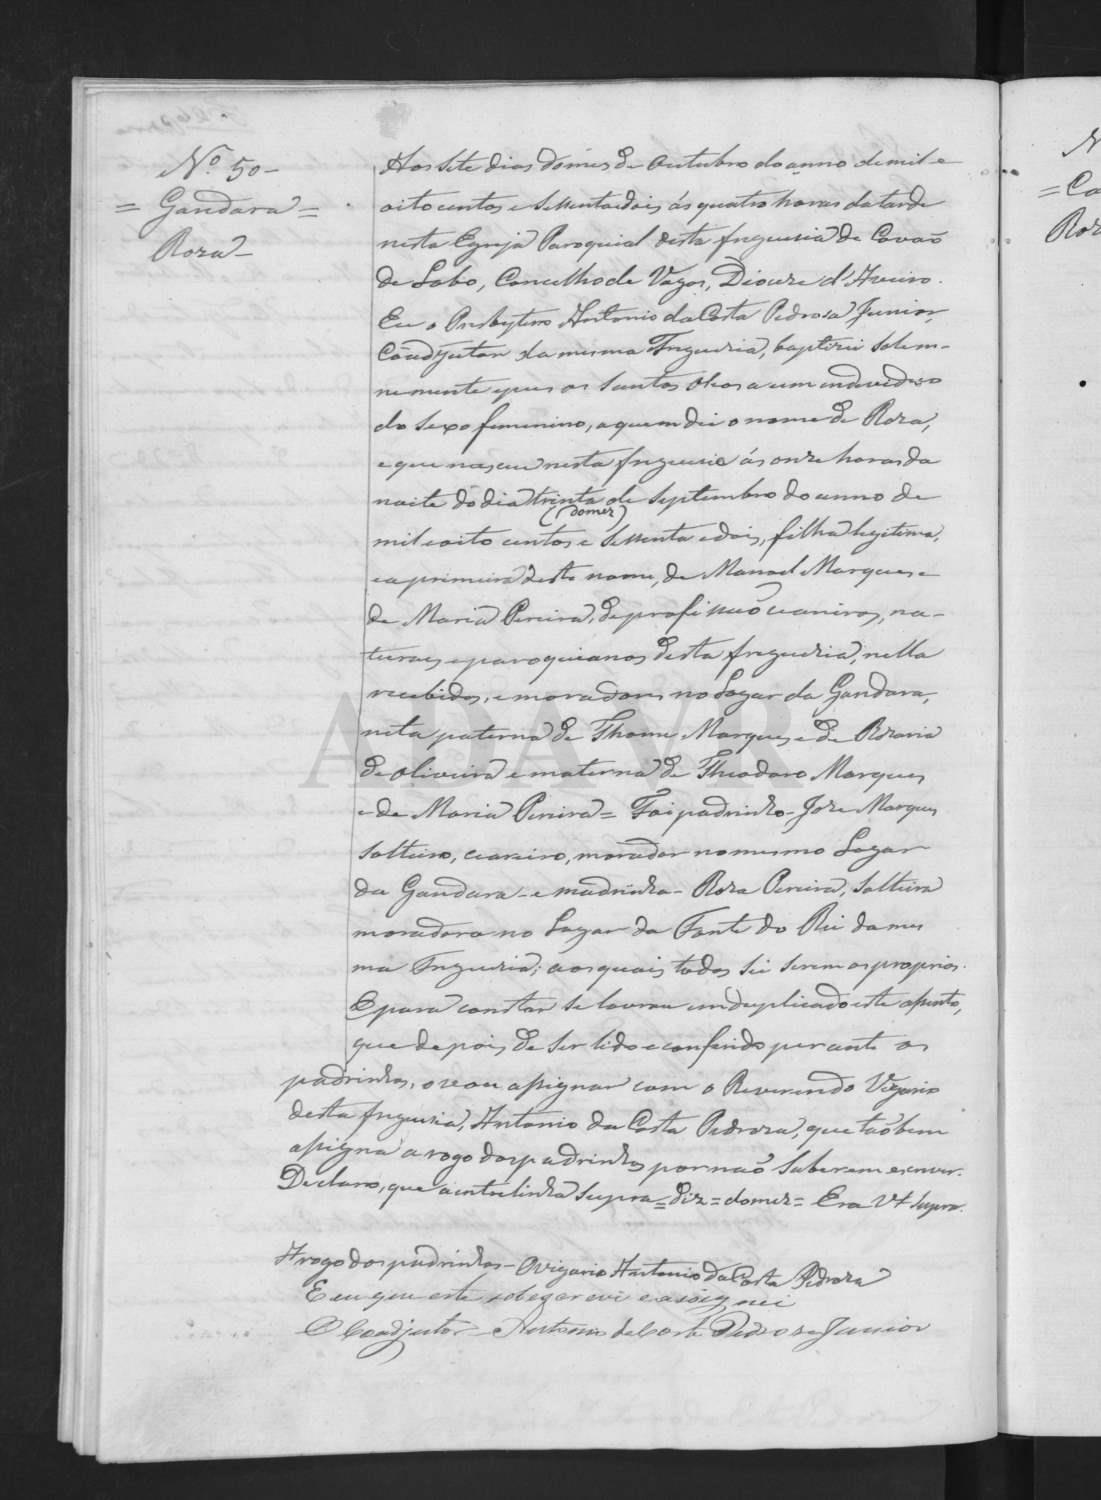 Nº 50-
= Gandara =
Roza -
Aos sete dias do mes de Outubro do anno de mil e
oitocentos e sessenta e dois, ás quatro horas da tarde
nesta Egreja Paroquial desta freguesia de Covaõ
de Lobo, Concelho de Vagos, Diocese d'Aveiro.
Eu o Presbytero Antonio da Costa Pedrosa Junior,
Coadjutor da mesma Freguesia, baptizei solem-
nemente e pus os Santos Oleos a um individuo
do sexo femenino, a quem dei o nome de Roza,
e que nasceu nesta freguesia ás onze horas da
noite do dia trinta de Septembro do anno de
(do mez)
mil e oito centos e sessenta e dois, filha legitima,
e a primeira deste nome, de Manoel Marques e
de Maria Pereira, de profissaõ ceareiros, na-
turaes e paroquianos desta freguezia, nella
recebidos, e moradores no Logar da Gandara,
neta paterna de Thome Marques e de Rozaria
de Oliveira e materna de Theodoro Marques
e de Maria Pereira = Foi padrinho - Joze Marques
solteiro, ceareiro, morador no mesmo Logar
da Gandara - e madrinha - Roza Pereira, solteira
moradora no Logar da Fonte do Rei da mes
ma Freguezia; aos quais todos sei serem os proprios.
E para constar se lavrou em duplicado este assento,
que depois de ser lido e conferido perante os
padrinhos, o vou assignar com o Reverendo Vigario
desta freguesia, Antonio da Costa Pedroza, que taõbem
assigna a rogo dos padrinhos por naõ saberem escrever.
Declaro, que a entrelinha supra = diz = do mez = Era Vt Supra.
A rogo dos padrinhos - O vigario Antonio da Costa Pedroza
E eu que este sobescrevi e assignei
O Coadjutor - Antonio da Costa Pedrosa Junior
ADAVR
N
= Ca
Roz